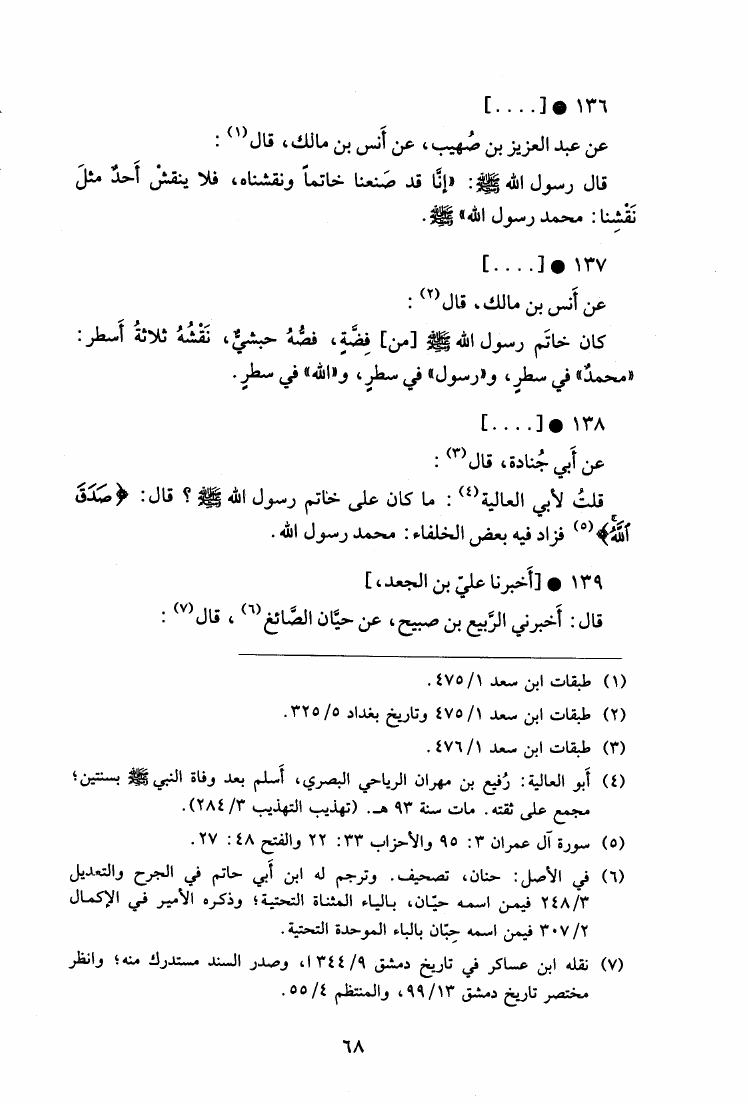 ١٣٦ ● [....]
عن عبد العزيز بن صُهيب، عن أَنس بن مالك، قال(١) :
قال رسول الله ﷺ: «إنَّا قد صَنعنا خاتماً ونقشناه، فلا ينقشْ أَحدٌ مثلَ
نَقْشِنا: محمد رسول الله» ﷺ.
١٣٧ ● [....]
عن أَنس بن مالك، قال(٢) :
كان خاتَم رسول الله ﷺ [من] فِضَّةٍ، فصُّهُ حبشيٌّ، نَقْشُهُ ثلاثةُ أَسطر:
«محمدٌ» في سطرٍ، و«رسول» في سطرٍ، و«الله» في سطرٍ.
١٣٨ ● [....]
عن أَبي جُنادة، قال(٣) :
قلتُ لأبي العالية(٤) : ما كان على خاتم رسول الله ﷺ ؟ قال: ﴿صَدَقَ
ٱللَّهُۗ﴾(٥) فزاد فيه بعض الخلفاء: محمد رسول الله.
١٣٩ ● [أَخبرنا عليّ بن الجعد،]
قال: أَخبرني الرَّبيع بن صبيح، عن حيَّان الصَّائغ(٦) ، قال(٧) :
(١) طبقات ابن سعد ١/ ٤٧٥.
(٢) طبقات ابن سعد ١/ ٤٧٥ وتاريخ بغداد ٥/ ٣٢٥.
(٣) طبقات ابن سعد ١/ ٤٧٦.
(٤) أبو العالية: رُفيع بن مهران الرياحي البصري، أَسلم بعد وفاة النبي ﷺ بسنتين؛
مجمع على ثقته. مات سنة ٩٣ هـ. (تهذيب التهذيب ٣/ ٢٨٤).
(٥) سورة آل عمران ٣: ٩٥ والأحزاب ٣٣: ٢٢ والفتح ٤٨: ٢٧.
(٦) في الأصل: حنان، تصحيف. وترجم له ابن أَبي حاتم في الجرح والتعديل
٣/ ٢٤٨ فيمن اسمه حيّان، بالياء المثناة التحتية؛ وذكره الأمير في الإكمال
٢/ ٣٠٧ فيمن اسمه حِبّان بالباء الموحدة التحتية.
(٧) نقله ابن عساكر في تاريخ دمشق ٩/ ٣٤٤ ا، وصدر السند مستدرك منه؛ وانظر
مختصر تاريخ دمشق ١٣/ ٩٩، والمنتظم ٤/ ٥٥.
٦٨